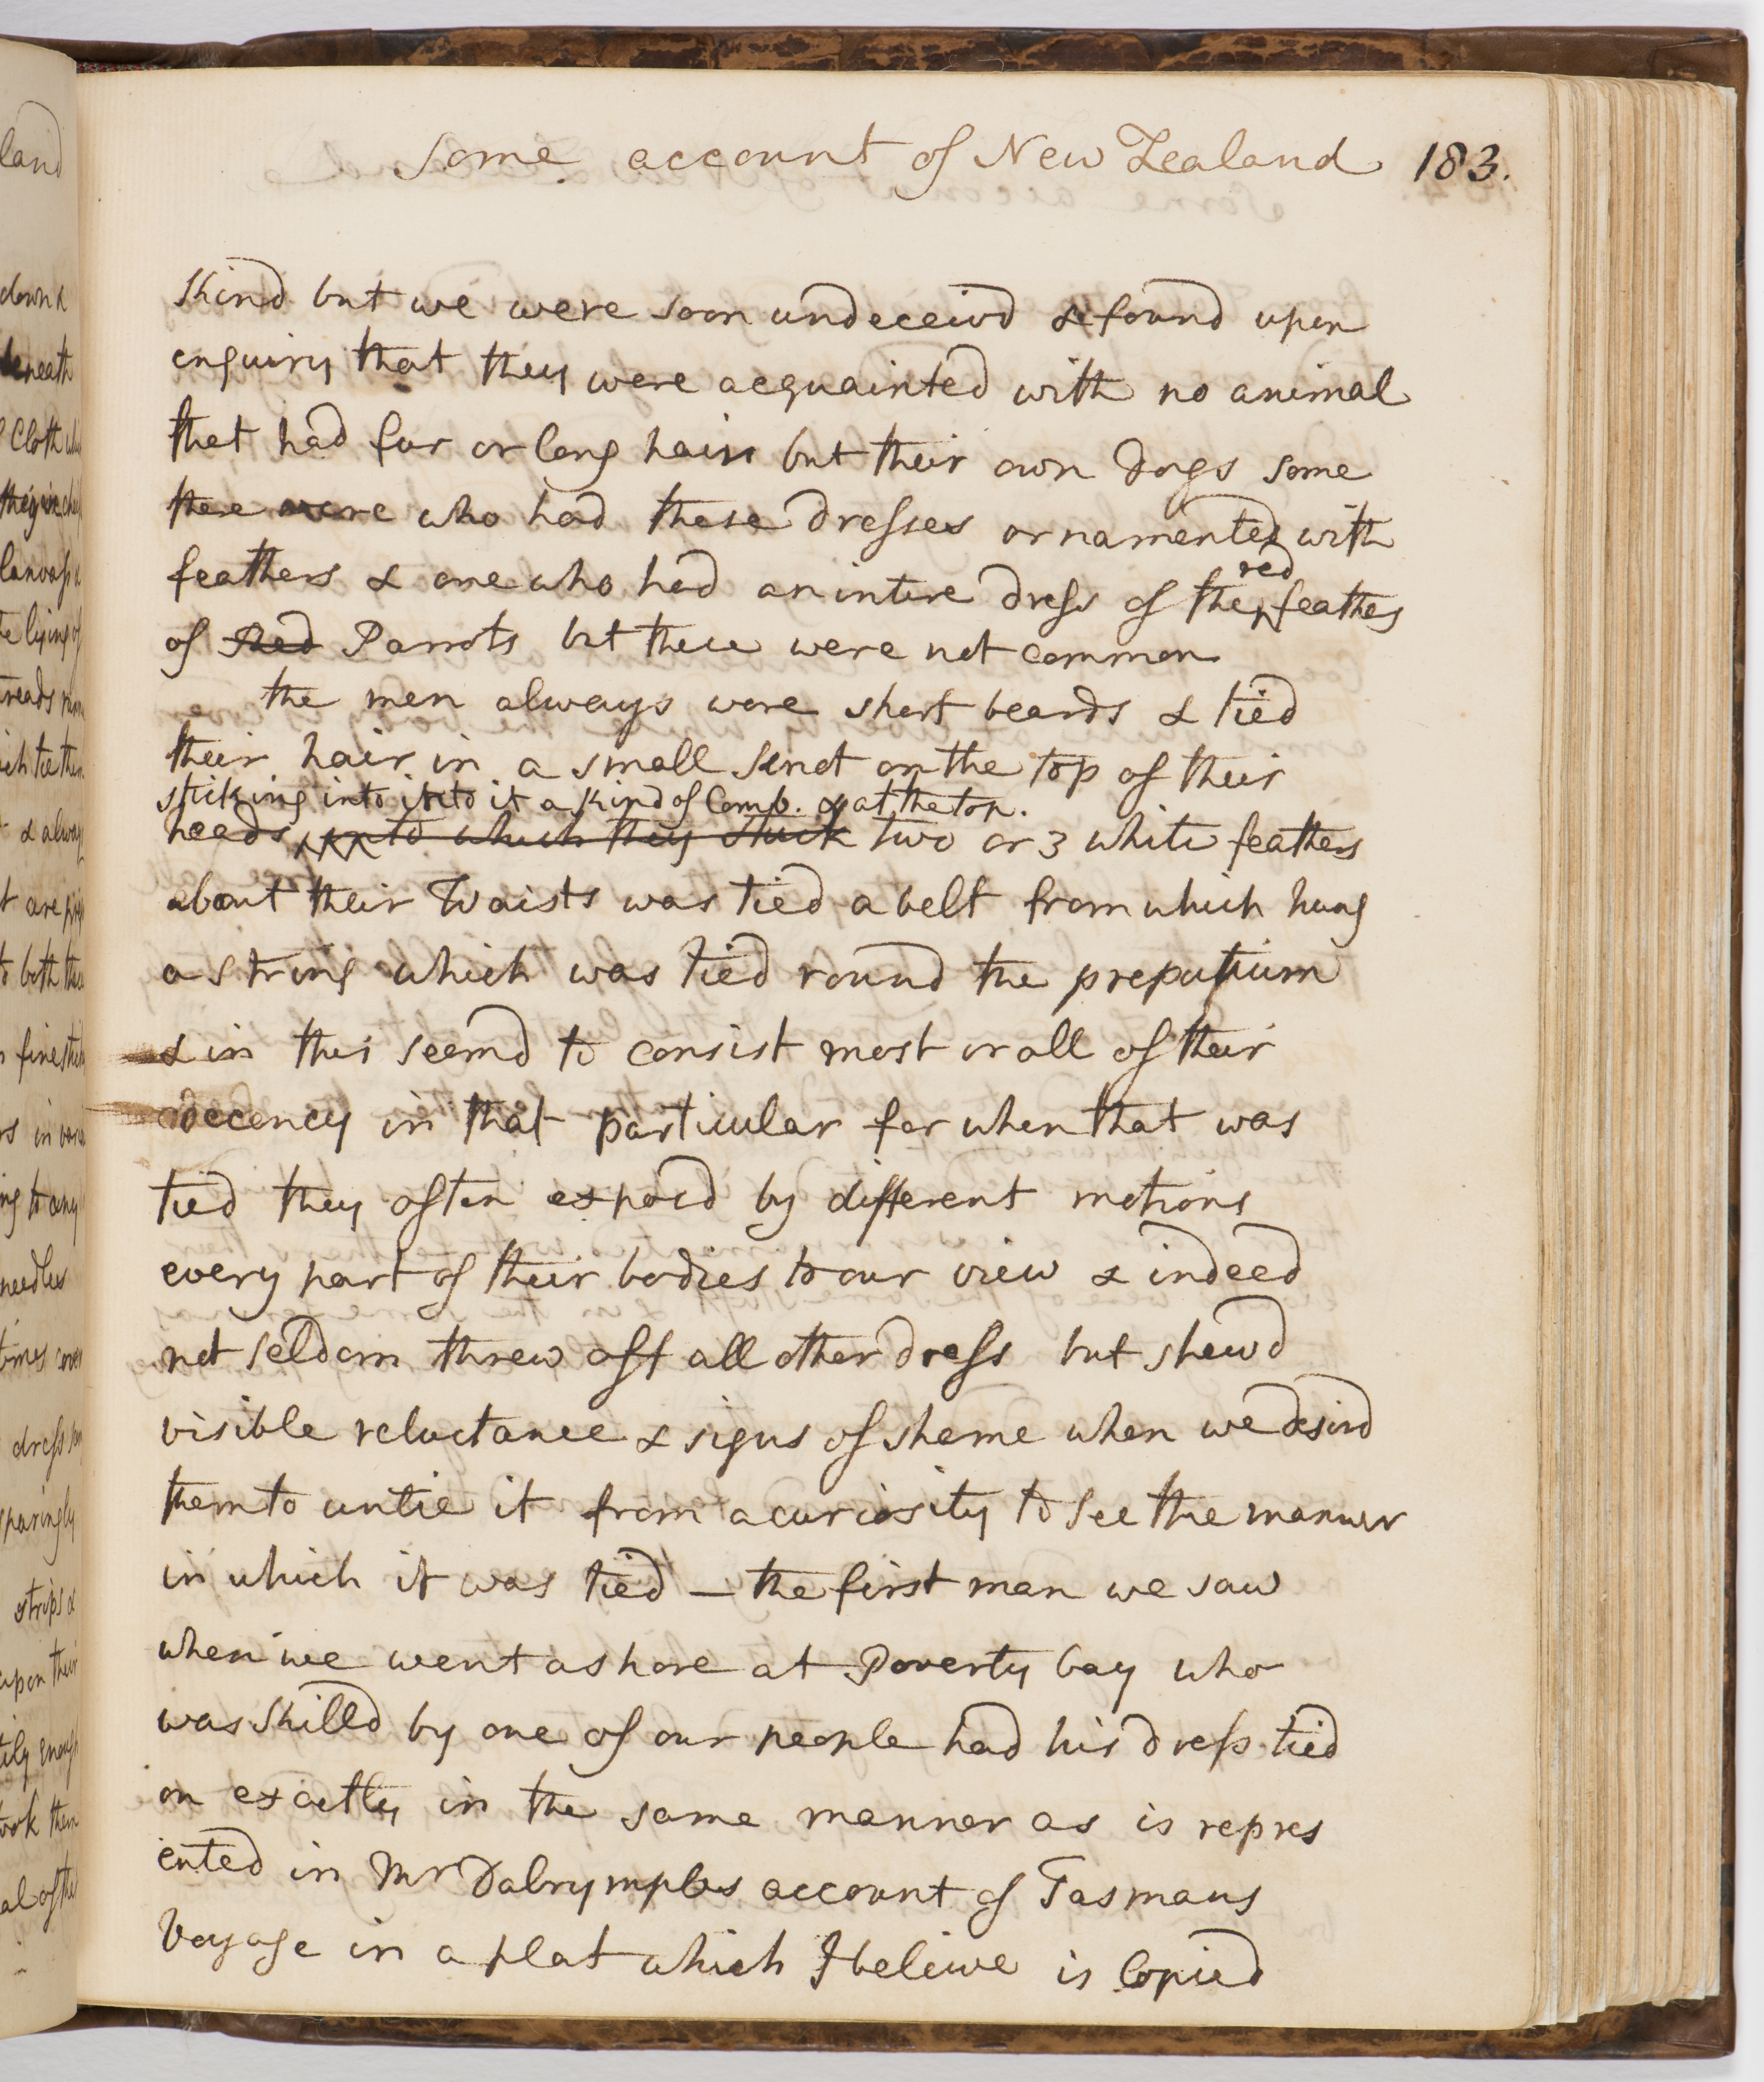 Some account of New Zealand 183.
kind but we were soon undeceivd & found upon
enquiry that they were acquainted with no animal
that had fur or long hair but their own dogs some
there were who had these dresses ornamented with
feathers & one who had an intire dress of the red feathers
of Red Parrots but these were not common
the men always wore short beards & tied
their hair in a small knot on the top of their
sticking into it to it a kind of Comb. & at the top.
heads, unto which they stuck two or 3 white feathers
about their Waists was tied a belt from which hung
a string which was tied round the preputium
& in this seemd to consist most or all of their
decency in that particular for when that was
tied they often exposd by different motions
every part of their bodies to our view & indeed
not seldom threw off all other dress but shewd
visible reluctance & signs of shame when we desird
them to untie it from a curiosity to see the manner
in which it was tied — the first man we saw
when we went ashore at Poverty bay who
was killd by one of our people had his dress tied
on exactly in the same manner as is repres
ented in Mr Dalrymples account of Tasmans
Voyage in a plat which I beleive is Copied
land
down &
beneath
Cloth
& alway
to both these
needles
dress
sparingly
strips &
upon their
took them